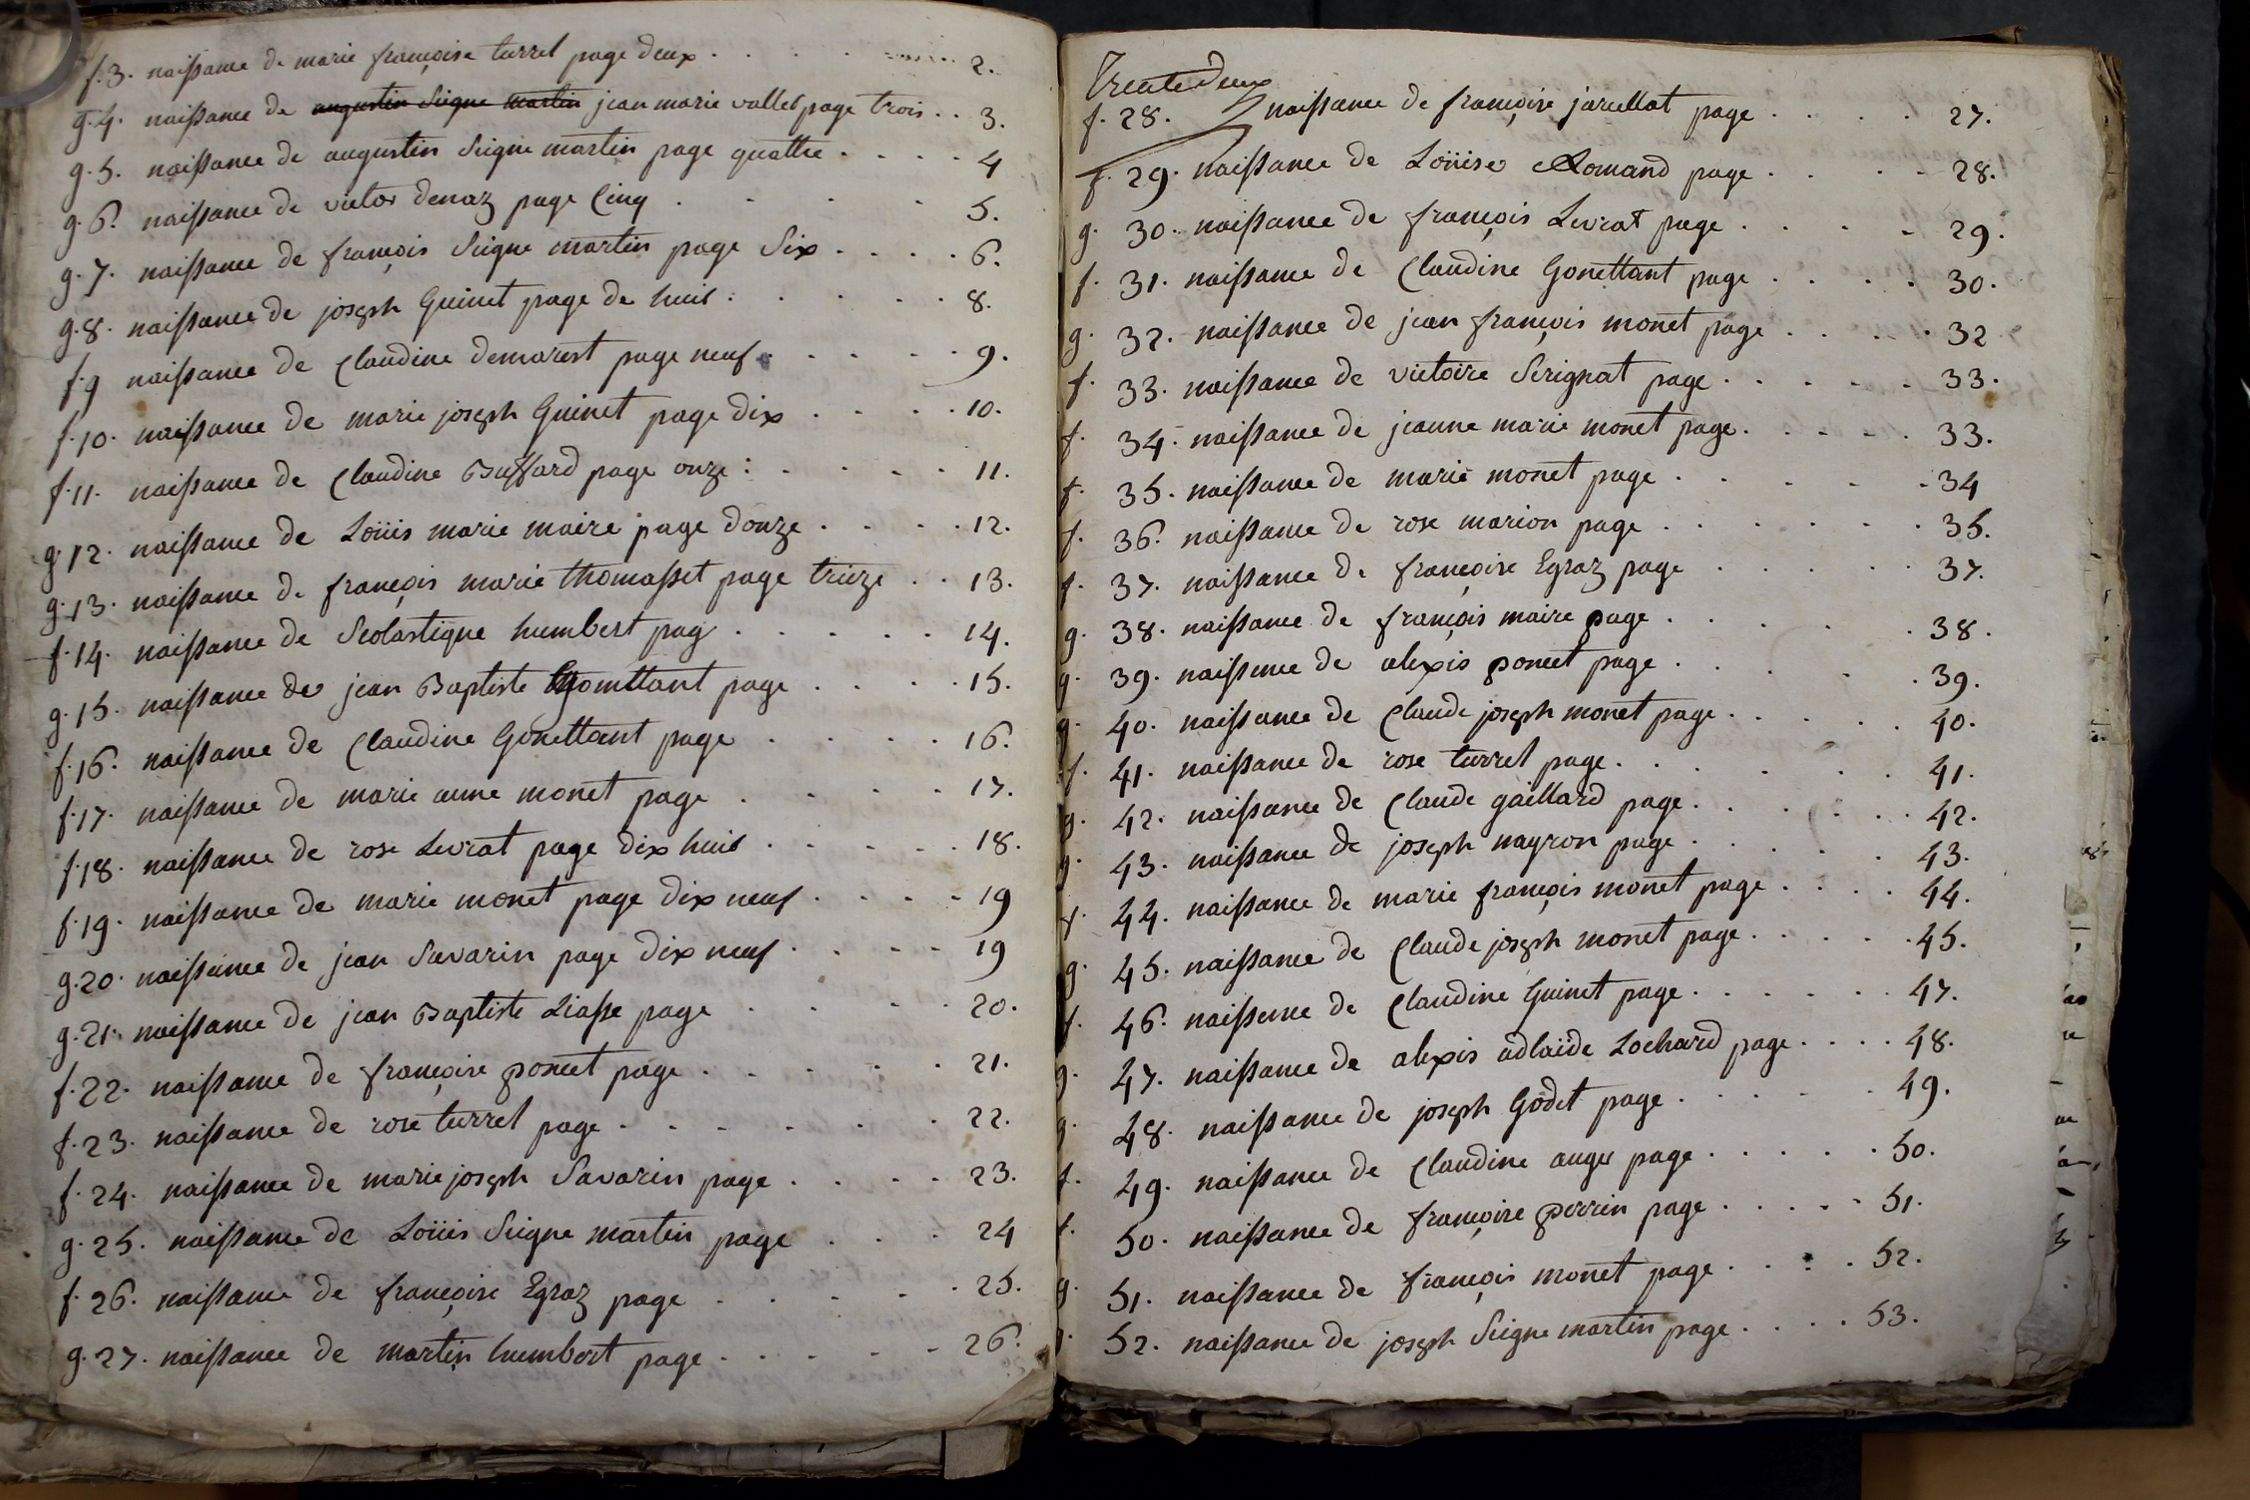 f. 3. naissance de marie françoise turrel page deux . . . . . 2.
g. 4. naissance de augustin Seigne martin jean marie vallet page trois . . 3.
g. 5. naissance de augustin Seigne martin page quattre . . . . 4
g. 6. naissance de victor denaz page Cinq . . . . 5.
g. 7. naissance de françois Seigne martin page Six . . . . 6.
g. 8. naissance de joseph Guinet page de huit . . . . . 8.
f. 9 naissance de Claudine demarest page neuf . . . . . 9.
f. 10. naissance de marie joseph Guinet page dix . . . . 10.
f. 11. naissance de Claudine Buffard page onze : . . . . 11.
g. 12. naissance de Loüis marie maire page douze . . . . 12.
g. 13. naissance de françois marie thomasset page treize . . 13.
f. 14. naissance de Scolastique humbert pag . . . . . 14.
g. 15. naissance de jean Baptiste Gonettant page . . . . 15.
f. 16. naissance de Claudine Gonettant page . . . . 16.
f. 17. naissance de marie anne monet page . . . . 17.
f. 18. naissance de rose Levrat page dix huit . . . . . 18.
f. 19. naissance de marie monet page dix neuf . . . . 19
g. 20. naissance de jean Savarin page dix neuf . . . . 19
g. 21. naissance de jean Baptiste Liasse page . . . . 20.
f. 22. naissance de françoise poncet page . . . . . 21.
f. 23. naissance de rose turrel page . . . . . . 22.
f. 24. naissance de marie joseph Savarin page . . . . 23.
g. 25. naissance de Loüis Seigne martin page . . . 24
f. 26. naissance de françoise Egraz page . . . . . 25.
g. 27. naissance de martin humbert page . . . . . 26.
Trente deux
f. 28. naissance de françoise jarcellat page . . . . 27.
f. 29. naissance de Loüise Romand page . . . . 28.
g. 30. naissance de françois Levrat page . . . . 29.
f. 31. naissance de Claudine Gonettant page . . . . 30.
g. 32. naissance de jean françois monet page . . . . 32
f. 33. naissance de victoire Serignat page . . . . . 33.
f. 34. naissance de jeanne marie monet page . . . . . 33.
f. 35. naissance de marie monet page . . . . . 34
f. 36. naissance de rose marion page . . . . . . 35.
f. 37. naissance de françoise Egraz page . . . . . 37.
g. 38. naissance de françois maire page . . . . . 38.
g. 39. naissance de alexis poncet page . . . . . 39.
g. 40. naissance de Claude joseph monet page . . . . . 40.
f. 41. naissance de rose turrel page . . . . . . 41.
g. 42. naissance de Claude gaillard page . . . . . 42.
g. 43. naissance de joseph nayron page . . . . . 43.
f. 44. naissance de marie françois monet page . . . . 44.
g. 45. naissance de Claude joseph monet page . . . . . 45.
f. 46. naissance de Claudine Guinet page . . . . . . 47.
g. 47. naissance de alexis adlaide Lochard page . . . . 48.
g. 48. naissance de joseph Godet page . . . . . 49.
f. 49. naissance de Claudine auger page . . . . . 50.
f. 50. naissance de françoise perrin page . . . . . 51.
g. 51. naissance de françois monet page . . . . 52.
g. 52. naissance de joseph Seigne martin page . . . . 53.